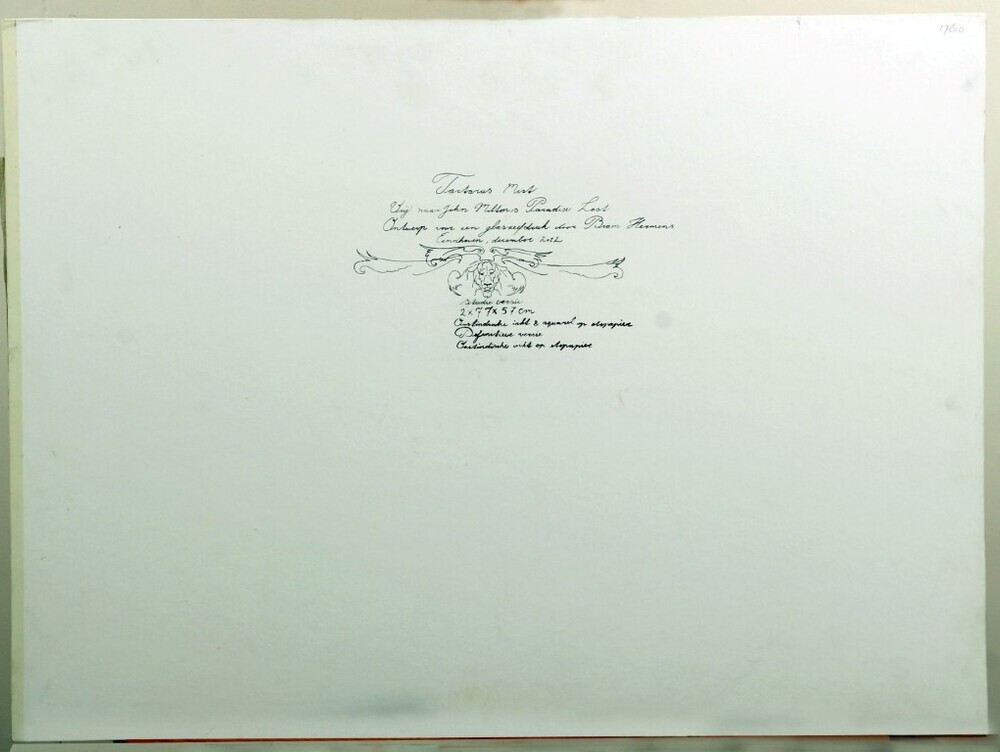 Tartarus Mist
Vrij naar John Miltons Paradise Lost
Ontwerp voor een glasreefdruk door Bram Hermens
Eindhoven, december 2012
Studie versie
2 x 77 x 57 cm
Oostindische inkt & aquarel op etspapier
Definitieve versie
Oostindische inkt op etspapier